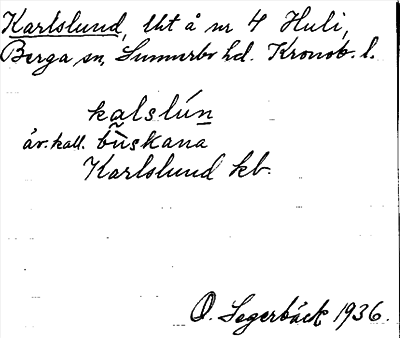 Karlslund, lht å nr 4 Huli,
Berga sn, Sunnerbo hd. Kronob. l.
kalslún
äv. kall. bũskana
Karlslund kb.
O. Segerbäck 1936.